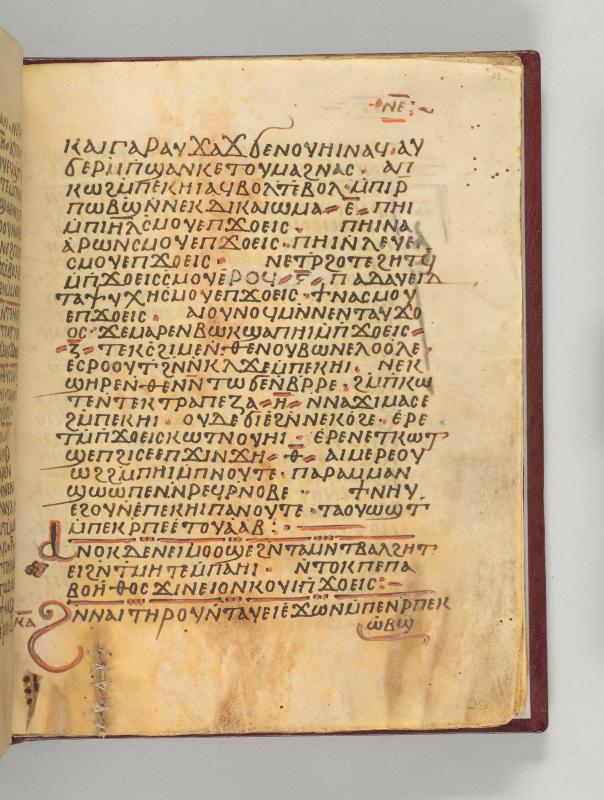 ⲛⲉ
ⲕⲁⲓⲅⲁⲣⲁⲩϫⲁϫϭⲉⲛⲟⲩⲏⲓⲛⲁϥ·ⲁⲩ
ϭⲉⲣⲙⲡϣⲁⲛⲕⲉⲧⲟⲩⲙⲁϩⲛⲁⲥ· ⲁⲡ
ⲕⲱϩⲙⲡⲉⲕⲏⲓⲁϥⲃⲟⲗⲧⲉⲃⲟⲗ·ⲙⲡⲓⲣ
ⲡⲱⲃϣⲛⲛⲉⲕⲇⲓⲕⲁⲓⲱⲙⲁ ⲉ̅ ⲡⲏⲓ
ⲙⲡⲓⲏⲗⲥⲙⲟⲩⲉⲡϫⲟⲉⲓⲥ· ⲡⲏⲓⲛⲁ
ⲁⲣⲱⲛⲥⲙⲟⲩⲉⲡϫⲟⲉⲓⲥ·ⲡⲏⲓⲛⲗⲉⲩⲉⲓ
ⲥⲙⲟⲩⲉⲡϫⲟⲉⲓⲥ· ⲛⲉⲧⲣϩⲟⲧⲉϩⲏⲧϥ
ⲙⲡϫⲟⲉⲓⲥⲥⲙⲟⲩⲉⲣⲟϥ ⲋ̅ ⲡⲁⲇⲁⲩⲉⲓⲇ
ⲧⲁⲯⲩⲭⲏⲥⲙⲟⲩⲉⲡϫⲟⲉⲓⲥ·ϯⲛⲁⲥⲙⲟⲩ
ⲉⲡϫⲟⲉⲓⲥ· ⲁⲓⲟⲩⲛⲟϥⲙⲛⲛⲉⲛⲧⲁⲩϫⲟ
ⲟⲥ·ϫⲉⲙⲁⲣⲉⲛⲃⲱⲕϣⲁⲡⲏⲓⲙⲡϫⲟⲉⲓⲥ
ⲍ̅·ⲧⲉⲕⲥϩⲓⲙⲉⲛ·ⲑⲉⲛⲟⲩⲃⲱⲛⲉⲗⲟⲟⲗⲉ·
ⲉⲥⲣⲟⲟⲩⲧϩⲛⲛⲕⲗϫⲉⲙⲡⲉⲕⲏⲓ· ⲛⲉⲕ
ϣⲏⲣⲉⲛ·ⲑⲉⲛⲛⲧⲱϭⲉⲛⲃⲣⲣⲉ·ϩⲙⲡⲕⲱ
ⲧⲉⲛⲧⲉⲕⲧⲣⲁⲡⲉⲍⲁ ⲏ̅ ⲛⲛⲁϫⲓⲙⲁⲥⲉ
ϩⲙⲡⲉⲕⲏⲓ· ⲟⲩⲇⲉϭⲓⲉϩⲛⲛⲉⲕⲟϩⲉ·ⲉⲣⲉ
ⲧⲙⲡϫⲟⲉⲓⲥⲕⲱⲧⲛⲟⲩⲏⲓ· ⲉⲣⲉⲛⲉⲧⲕⲱⲧ
ϣⲉⲡϩⲓⲥⲉⲉⲡϫⲓⲛϫⲏ ⲑ̅ ⲁⲓⲙⲉⲣⲉⲟⲩ
ⲱϩϩⲙⲡⲏⲓⲙⲡⲛⲟⲩⲧⲉ·ⲡⲁⲣⲁⲙⲙⲁⲛ
ϣⲱⲱⲡⲉⲛⲛⲣⲉϥⲣⲛⲟⲃⲉ ϯⲛⲏⲩ
ⲉϩⲟⲩⲛⲉⲡⲉⲕⲏⲓⲡⲁⲛⲟⲩⲧⲉ·ⲧⲁⲟⲩⲱϣⲧ
ⲙⲡⲉⲕⲣⲡⲉⲉⲧⲟⲩⲁⲁⲃ:
ⲁⲛⲟⲕⲇⲉⲛⲉⲓⲙⲟⲟϣⲉϩⲛⲧⲁⲙⲛⲧⲃⲁⲗϩⲏⲧ
ⲉⲓϩⲛⲧⲙⲏⲧⲉⲙⲡⲁⲏⲓ· ⲛⲧⲟⲕⲡⲉⲡⲁ
ⲃⲟⲏⲑⲟⲥϫⲓⲛⲉⲓⲟⲛⲕⲟⲩⲓⲡϫⲟⲉⲓⲥ:
ⲕⲁ ϩⲛⲛⲁⲓⲧⲏⲣⲟⲩⲛⲧⲁⲩⲉⲓⲉϫⲱⲛⲙⲡⲉⲛⲣⲡⲉⲕ
ⲱⲃϣ